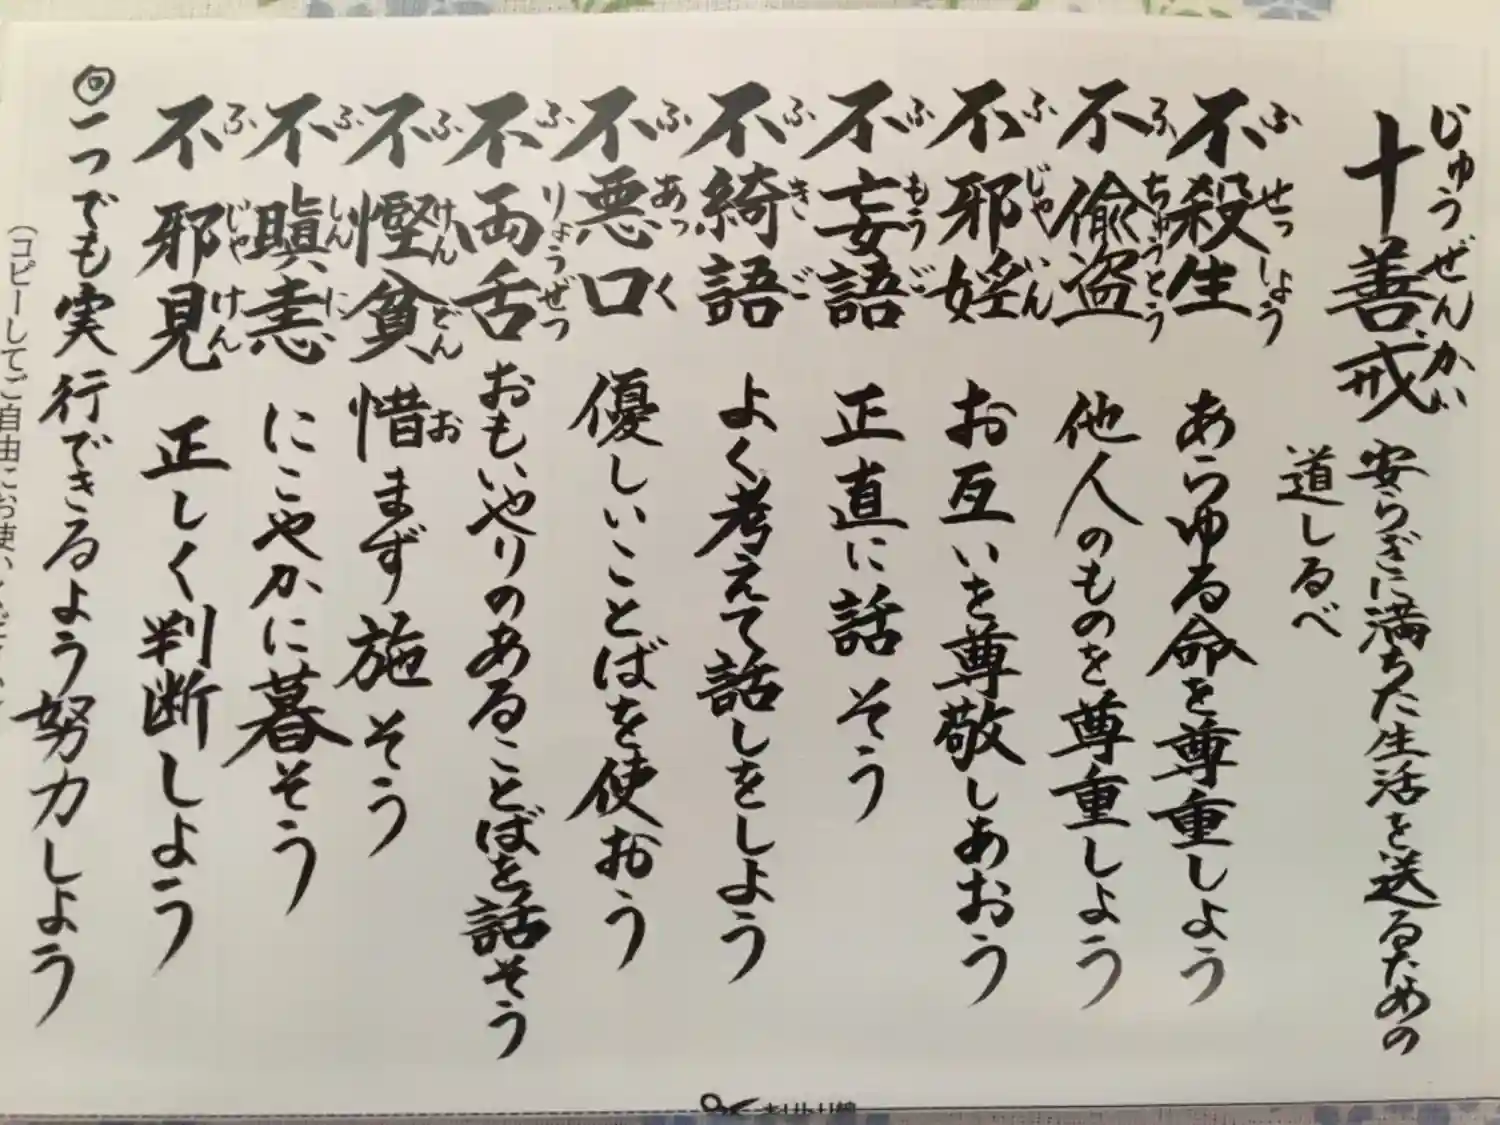 十善戒 安らぎに満ちた生活を送るための
じゅうぜんかい
道しるべ
不殺生 あらゆる命を尊重しよう
ふせっしょう
不偸盗 他人のものを尊重しよう
ふちゅうとう
不邪婬 お互いを尊敬しあおう
ふじゃいん
不妄語 正直に話そう
ふもうご
不綺語 よく考えて話しをしよう
ふきご
不悪口 優しいことばを使おう
ふあっく
不両舌 おもいやりのあることばを話そう
ふりょうぜつ
不慳貪 惜まず施そう
ふけんどん お
不瞋恚 にこやかに暮そう
ふしんに
不邪見 正しく判断しよう
ふじゃけん
◎一つでも実行できるよう努力しよう
(コピーしてご自由にお使い